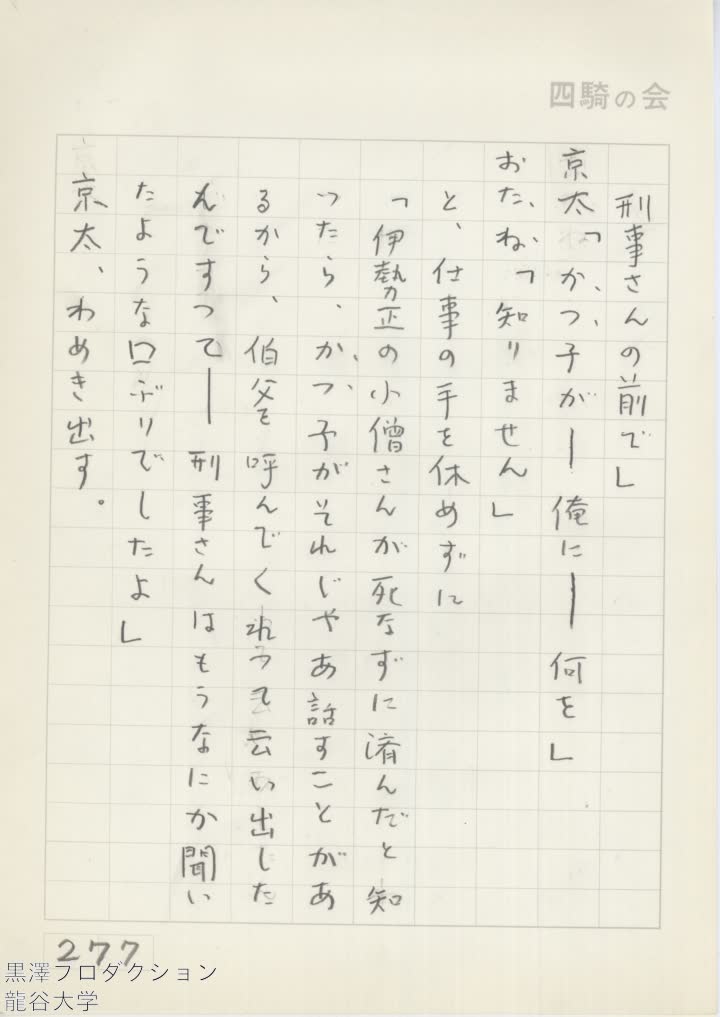 四騎の会
刑事さんの前で」
京太「かつ子が――俺に――何を」
おたね「知りません」
と、仕事の手を休めずに
「伊勢正の小僧さんが死なずに済んだと知
ったら、かつ子がそれじゃあ話すことがあ
るから、伯父を呼んでくれって云い出した
んですって――刑事さんはもうなにか聞い
たような口ぶりでしたよ」
京太、わめき出す。
277
黒澤プロダクション
龍谷大学